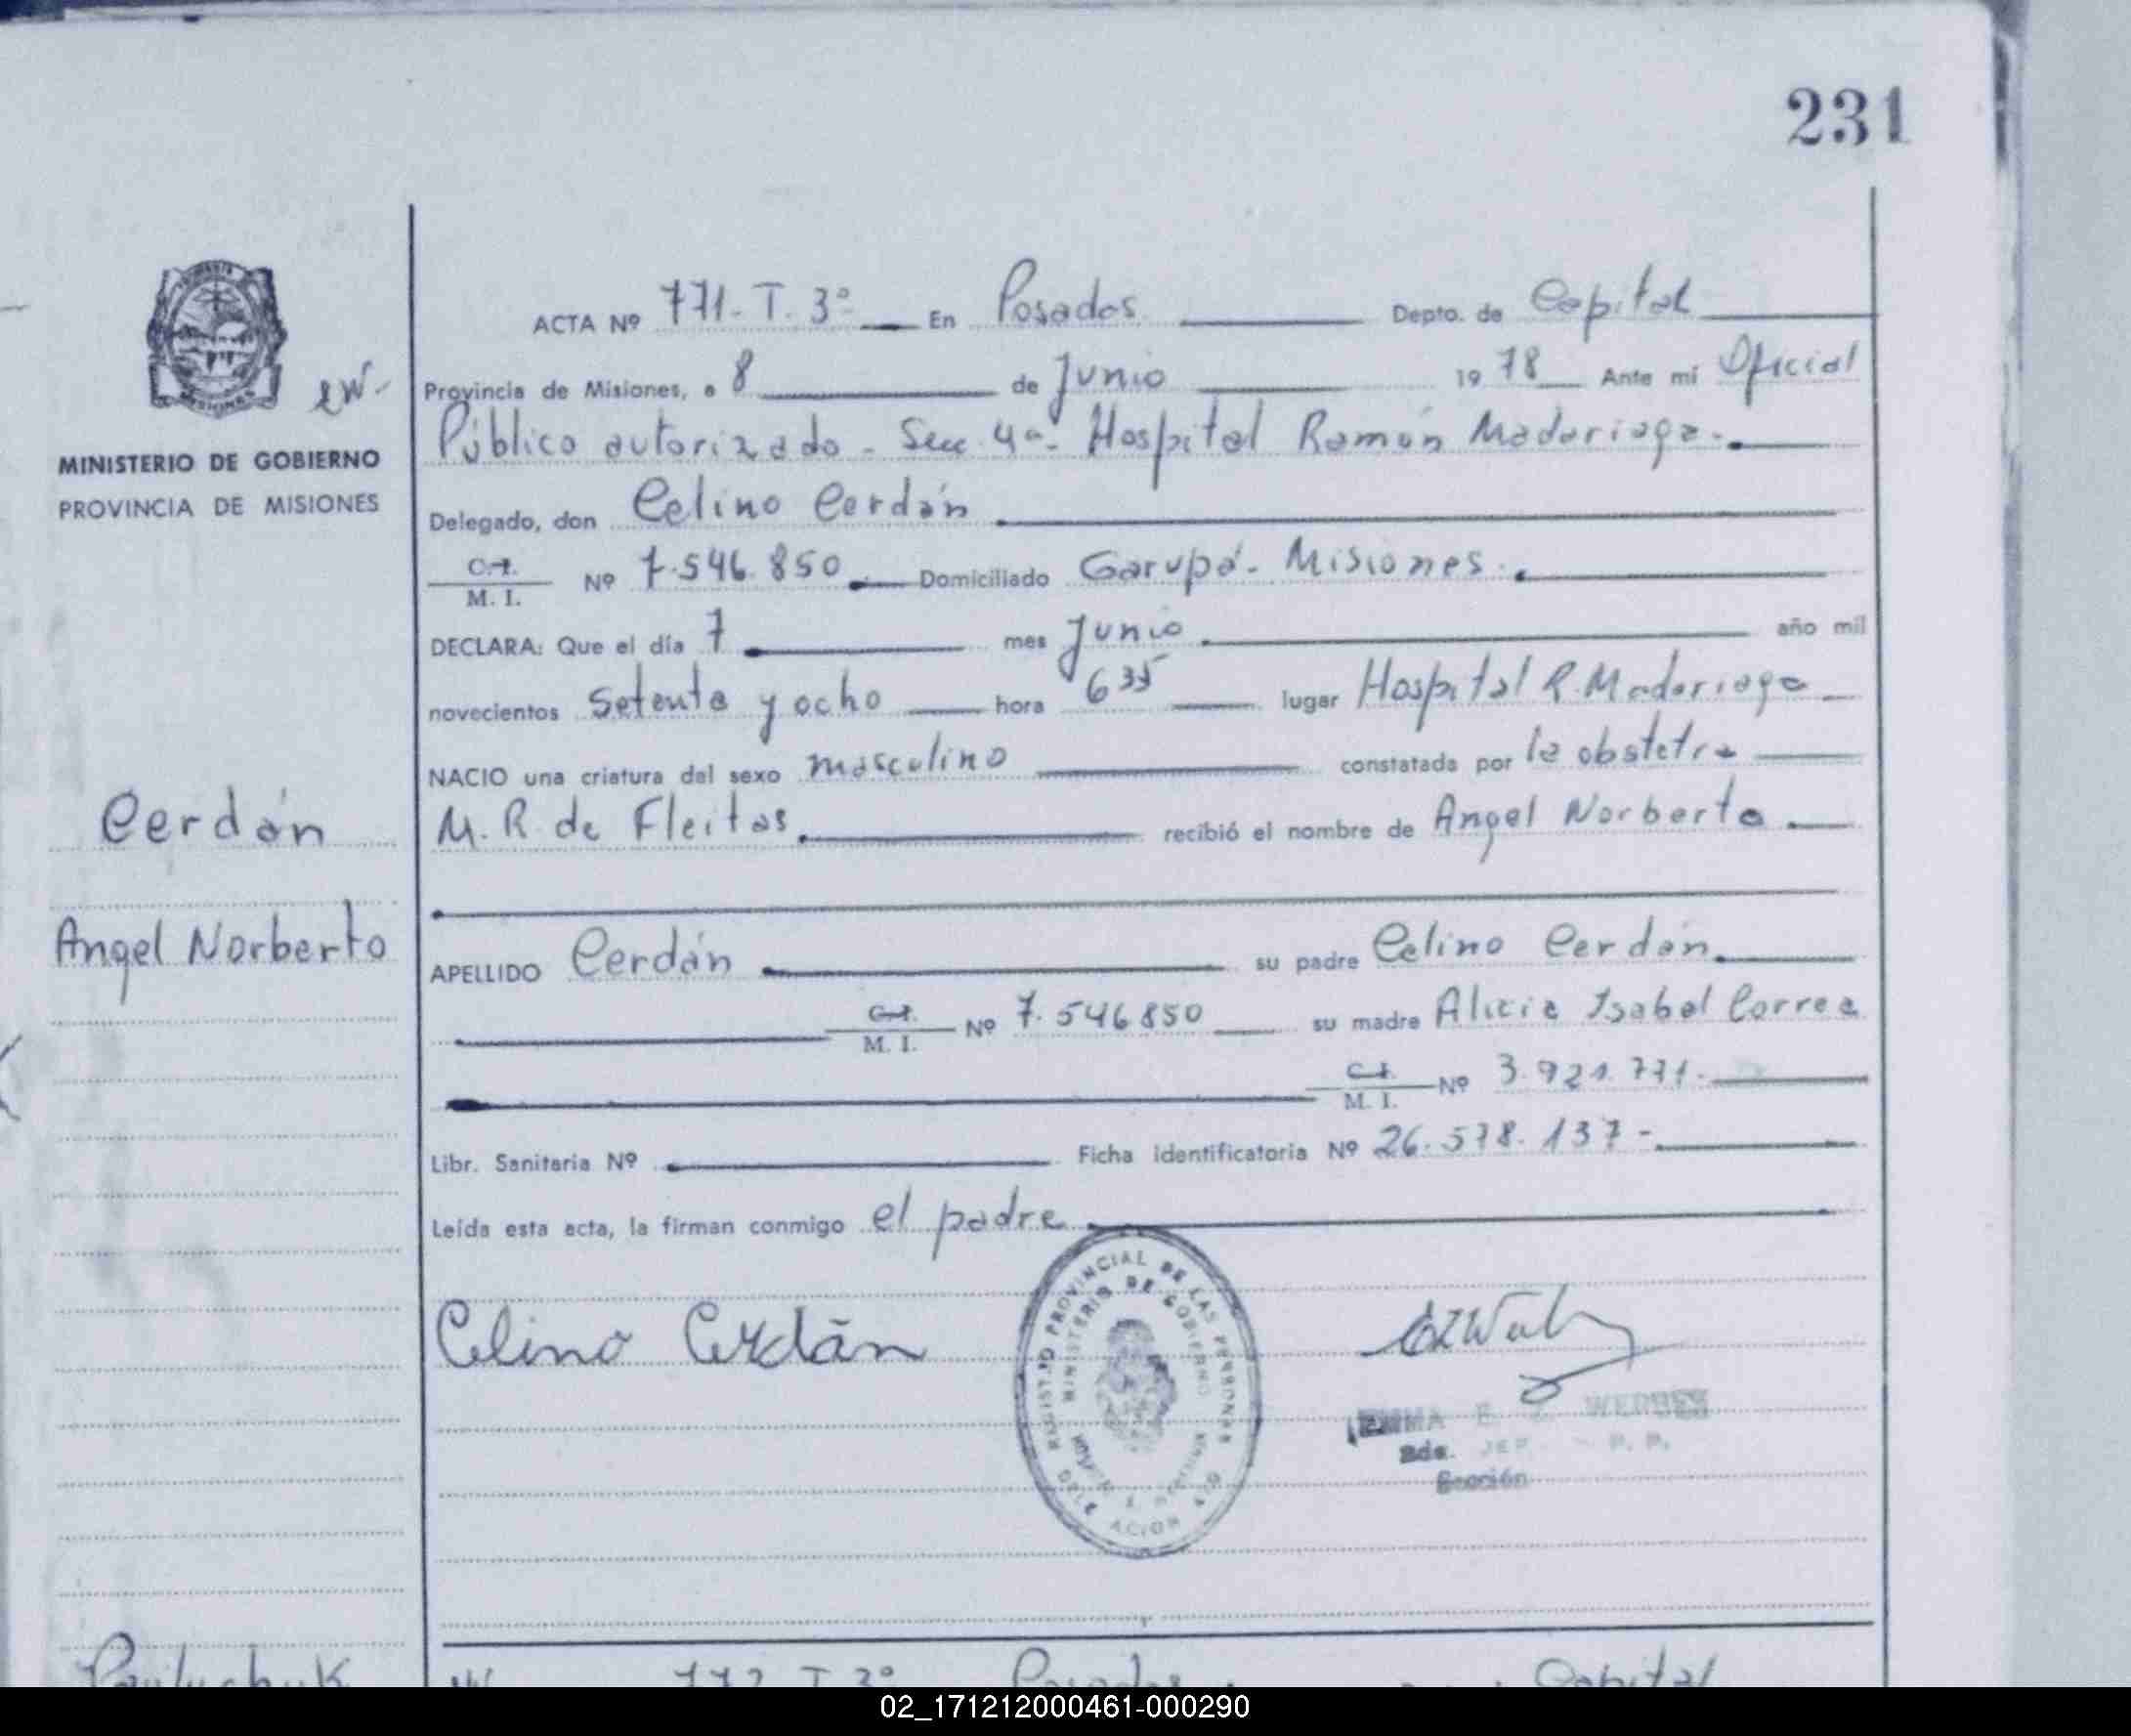 231
ACTA Nº 771-T. 3º En Posadas Depto. de Capital
Provincia de Misiones, a 8 de Junio 1978 Ante mí Oficial
Público autorizado - Sec. 4ª- Hospital Ramón Madariaga.-
MINISTERIO DE GOBIERNO
PROVINCIA DE MISIONES
Delegado, don Celino Cerdán
C.I.
M. I. Nº 7.546.850 Domiciliado Garupá - Misiones.
DECLARA: Que el día 7 mes Junio año mil
novecientos setenta y ocho hora 6 35 lugar Hospital R. Madariaga
NACIO una criatura del sexo masculino constatada por la obstetra
M. R. de Fleitas. recibió el nombre de Angel Norberto
Cerdán
Angel Norberto
APELLIDO Cerdán su padre Celino Cerdán.
C.I.
M. I. Nº 7.546850 su madre Alicia Isabel Correa
C.I.
M. I. Nº 3.921.771.
Libr. Sanitaria Nº Ficha identificatoria Nº 26.578.137-
Leída esta acta, la firman conmigo el padre
Celino Cerdán
REGISTRO PROVINCIAL DE LAS PERSONAS
MINISTERIO DE GOBIERNO
DELEGACION
EMMA E. Z.
Sección
772 T 3º Posadas Capital
02_171212000461-000290